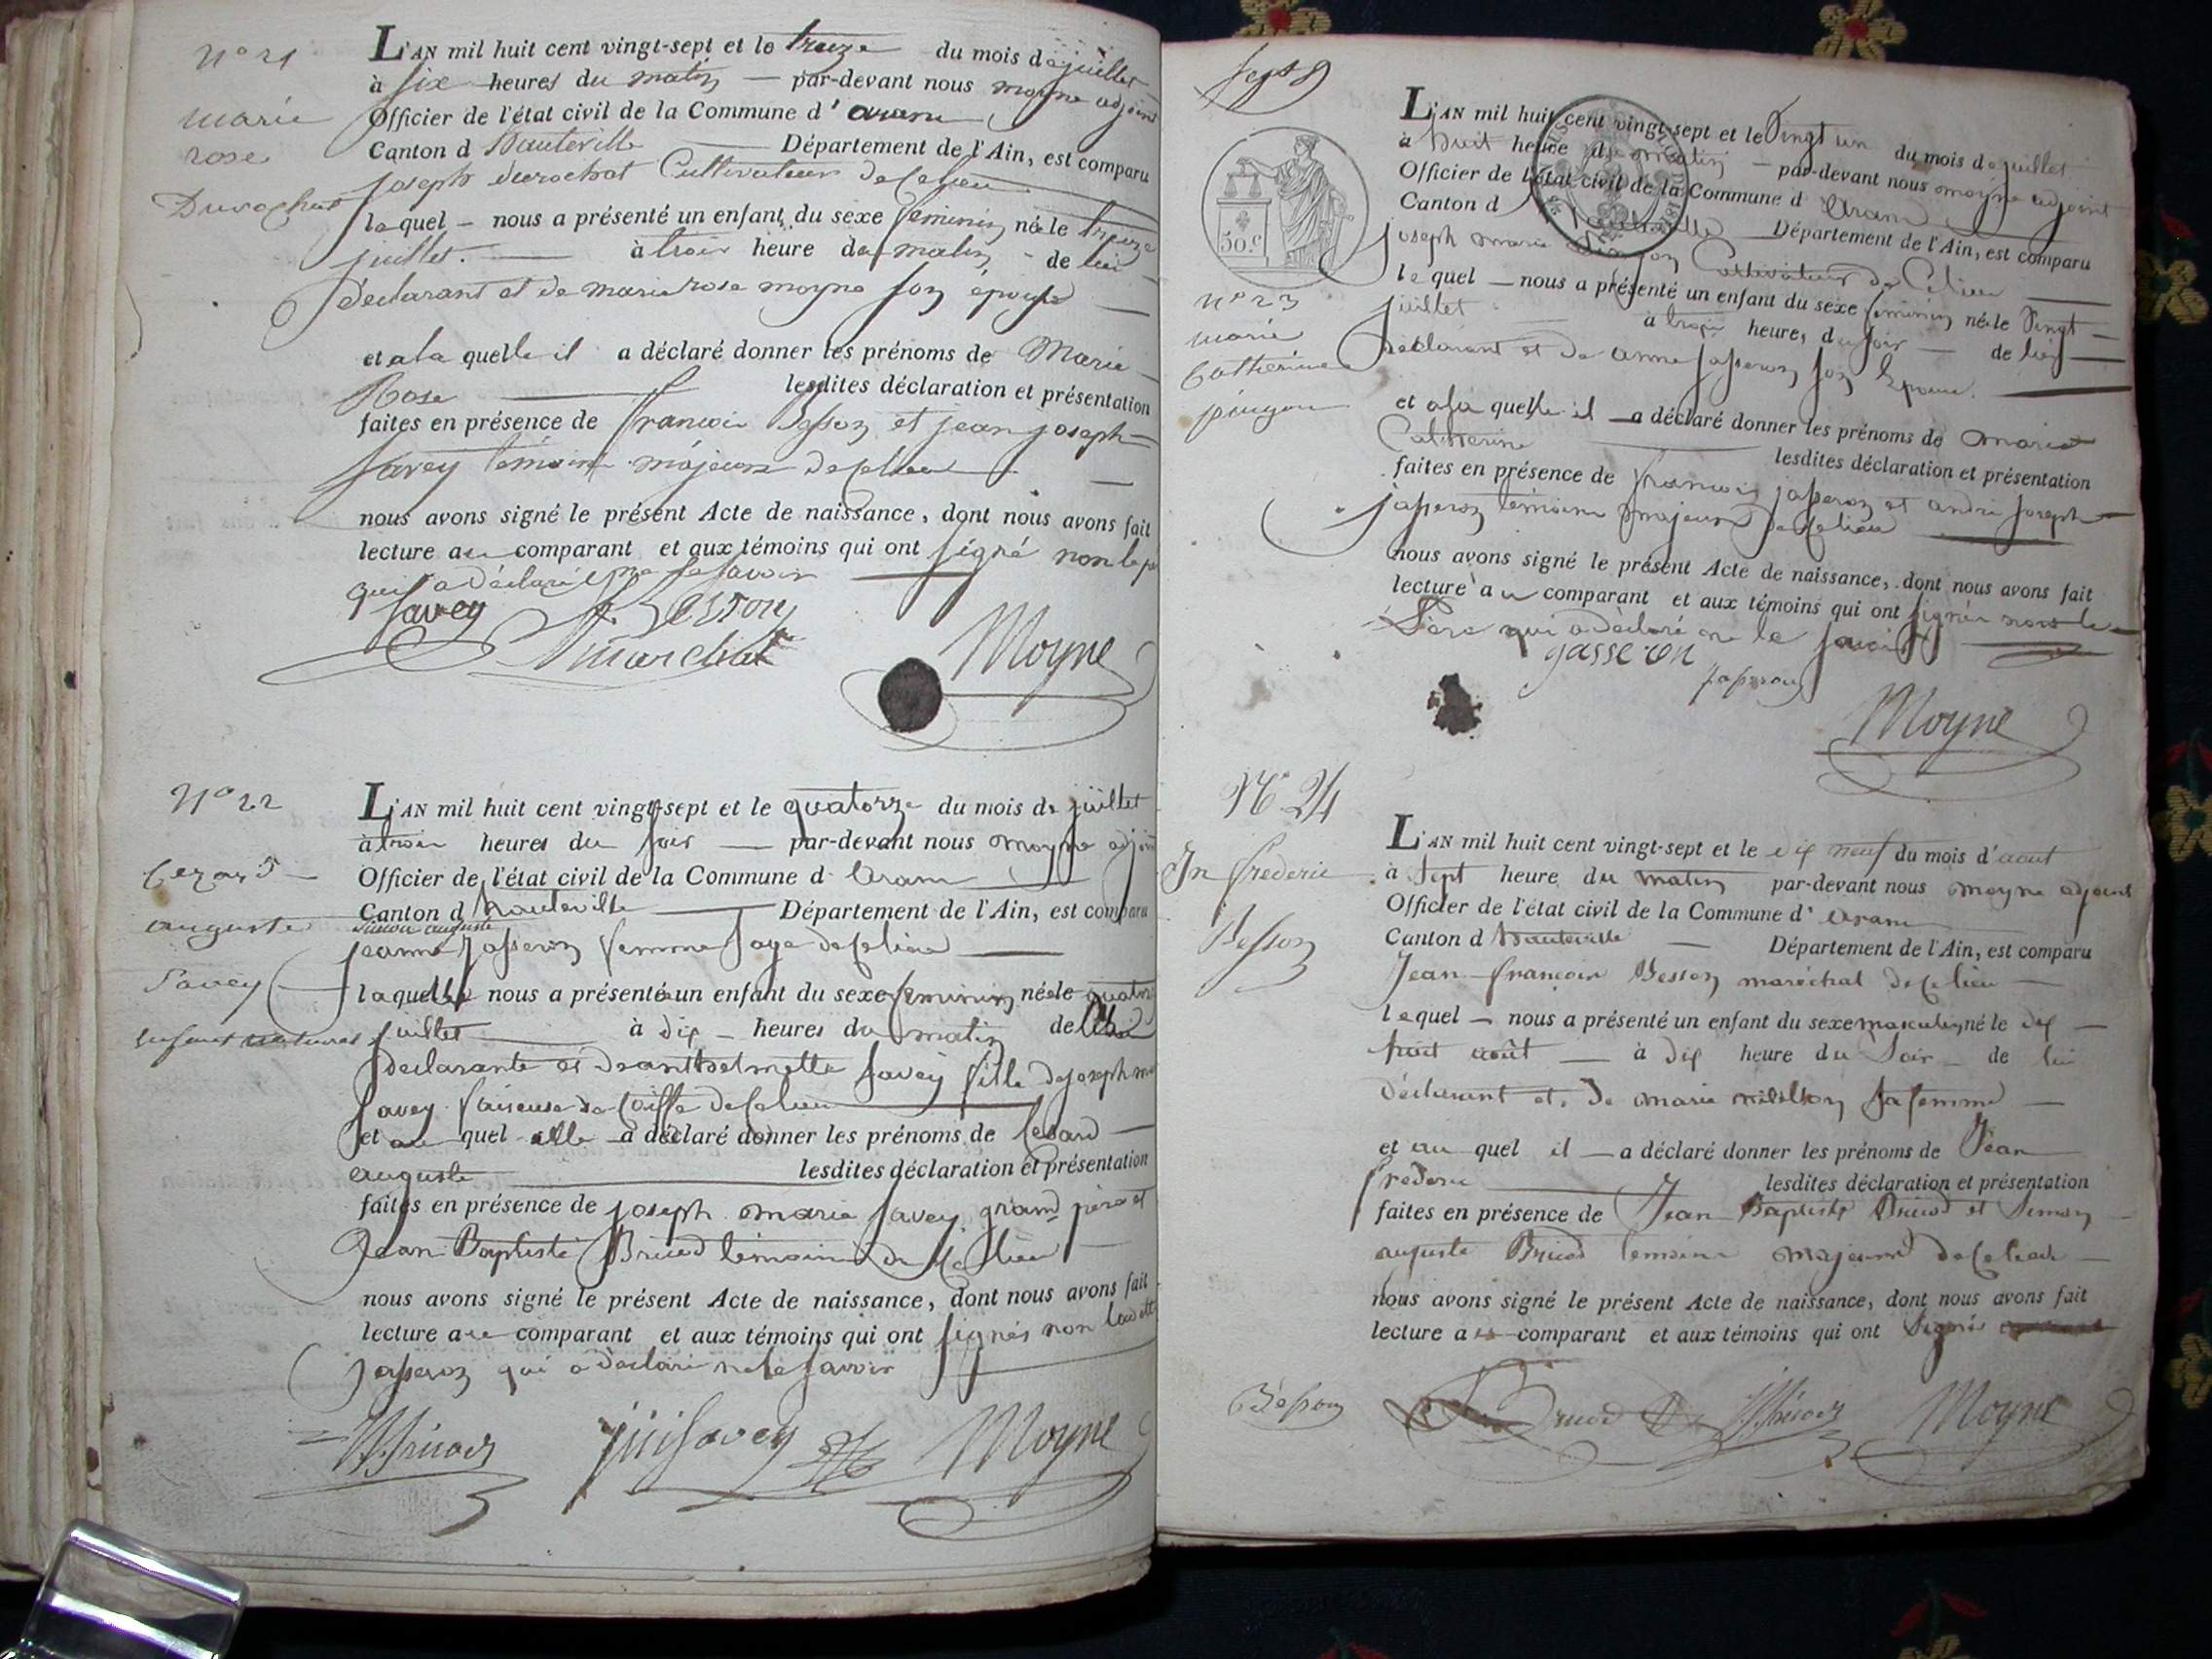 N° 21
marie
rose
Durochat
L'AN mil huit cent vingt-sept et le treize du mois de juillet
à six heures du matin par-devant nous moyne adjoint
Officier de l'état civil de la Commune d'aram
Canton d hauteville Département de l'Ain, est comparu
joseph durochat Cultivateur de ce lieu
lequel nous a présenté un enfant du sexe feminin née le treize
juillet à trois heure du matin de lui
déclarant et de marie rose moyne son épouse
et a la quelle il a déclaré donner les prénoms de Marie
Rose lesdites déclaration et présentation
faites en présence de francois Besson et jean joseph
savey témoins majeurs de ce lieu
nous avons signé le présent Acte de naissance, dont nous avons fait
lecture au comparant et aux témoins qui ont signé non le
qui a déclaré ne le savoir
Savey
Moyne
N° 22
Cezard
auguste
Savey
enfant naturel
L'AN mil huit cent vingt-sept et le quatorze du mois de juillet
à trois heures du soir par-devant nous moyne adjoint
Officier de l'état civil de la Commune d aram
Canton d hauteville Département de l'Ain, est comparu
jeanne jasseron femme sage de ce lieu
laquelle nous a présenté un enfant du sexe feminin née le
juillet à dix heures du matin de
declarante et de anthelmette savey fille de joseph
savey faiseuse de coiffe de ce lieu
et au quel elle a déclaré donner les prénoms de Cesard
auguste lesdites déclaration et présentation
faites en présence de joseph marie savey grand père et
Jean Baptiste Bruod témoins de ce lieu
nous avons signé le présent Acte de naissance, dont nous avons fait
lecture au comparant et aux témoins qui ont signés non
jasseron qui a déclaré ne le savoir
Savey
Moyne
50.c
N° 23
marie
Catherine
pingon
L'AN mil huit cent vingt-sept et le Vingt un du mois de juillet
à huit heure du matin par-devant nous moyne adjoint
Officier de l'état civil de la Commune d aram
Canton d hauteville Département de l'Ain, est comparu
joseph marie pingon Cultivateur de Ce lieu
lequel nous a présenté un enfant du sexe feminin née le Vingt
juillet à trois heures du soir de lui
déclarant et de anne jasseron son Epouse
et a la quelle il a déclaré donner les prénoms de marie
Catherine lesdites déclaration et présentation
faites en présence de francois jasseron et andré joseph
jasseron témoins majeurs de ce lieu
nous avons signé le présent Acte de naissance, dont nous avons fait
lecture au comparant et aux témoins qui ont signés non le
Père qui a déclaré ne le savoir
gasseron
jasseron
Moyne
N° 24
Jn frederic
Besson
L'AN mil huit cent vingt-sept et le dix neuf du mois d'aout
à sept heure du matin par-devant nous moyne adjoint
Officier de l'état civil de la Commune d'aram
Canton d hauteville Département de l'Ain, est comparu
Jean francois Besson maréchal de ce lieu
lequel nous a présenté un enfant du sexe masculin né le dix
huit août à dix heure du Soir de lui
déclarant et de marie sa femme
et au quel il a déclaré donner les prénoms de Jean
frederic lesdites déclaration et présentation
faites en présence de Jean Baptiste Bruod et Simon
auguste Bruod temoins majeurs de ce lieu
nous avons signé le présent Acte de naissance, dont nous avons fait
lecture au comparant et aux témoins qui ont Signés
Besson
Moyne